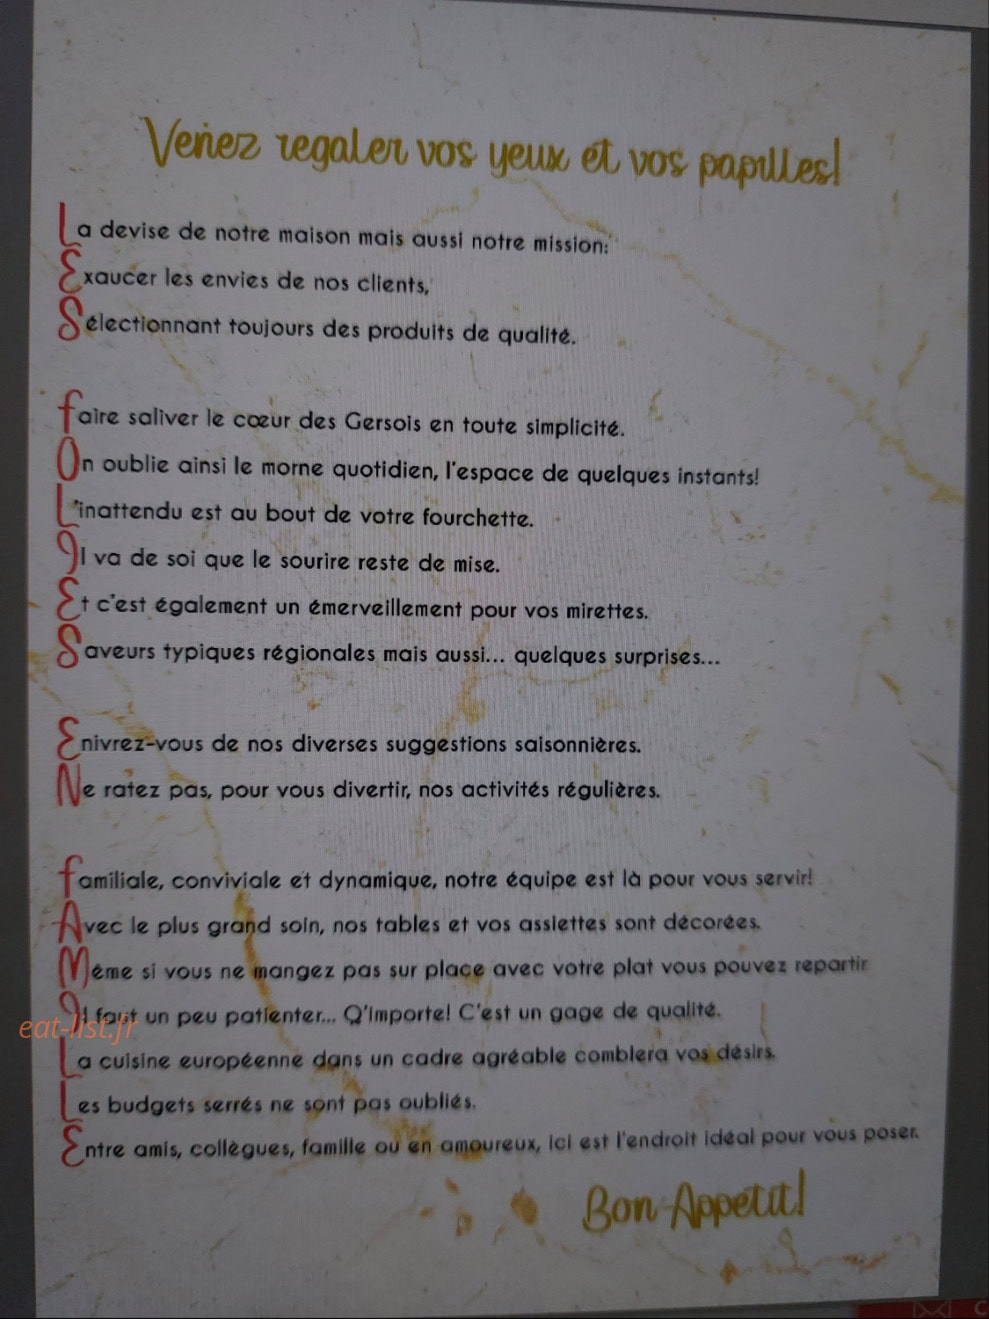 Venez regaler vos yeux et vos papilles!
La devise de notre maison mais aussi notre mission:
Exaucer les envies de nos clients,
Sélectionnant toujours des produits de qualité.
faire saliver le cœur des Gersois en toute simplicité.
On oublie ainsi le morne quotidien, l'espace de quelques instants!
L'inattendu est au bout de votre fourchette.
Il va de soi que le sourire reste de mise.
Et c'est également un émerveillement pour vos mirettes.
Saveurs typiques régionales mais aussi... quelques surprises...
Enivrez-vous de nos diverses suggestions saisonnières.
Ne ratez pas, pour vous divertir, nos activités régulières.
familiale, conviviale et dynamique, notre équipe est là pour vous servir!
Avec le plus grand soin, nos tables et vos assiettes sont décorées.
Même si vous ne mangez pas sur place avec votre plat vous pouvez repartir
Il faut un peu patienter... Q'importe! C'est un gage de qualité.
eat-list.fr
La cuisine européenne dans un cadre agréable comblera vos désirs.
Les budgets serrés ne sont pas oubliés.
Entre amis, collègues, famille ou en amoureux, ici est l'endroit idéal pour vous poser.
Bon Appetit!
C